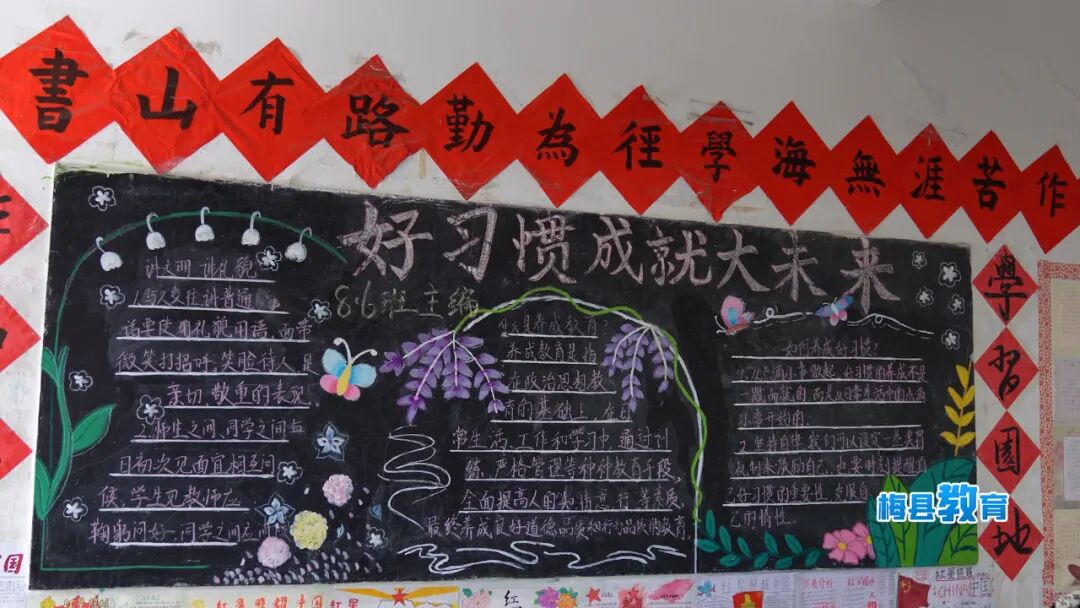 書山有路勤為徑學海無涯苦作
學習園地
好习惯成就大未来
8.6班主编
讲文明 讲礼貌
1.与人交往讲普通
话要使用礼貌用语,面带
微笑打招呼,笑脸待人是
亲切、敬重的表现
2.师生之间、同学之间每
日初次见面宜相互问
候,学生见教师应
鞠躬问好,同学之间应
什么是养成教育?
养成教育是指
在政治思想教
育的基础上,在日
常生活、工作和学习中,通过训
练、严格管理等种种教育手段,
全面提高人的知情意行等素质,
最终养成良好道德品质和行为品质的教育.
如何养成好习惯?
1.从小事做起,好习惯的养成不是
一蹴而就的,而是从日常生活中的点滴
小事开始的.
2.坚持自律,我们可以设定一些奖罚
机制来激励自己,也要时刻提醒自
己好习惯的重要性,克服自
己的惰性.
梅县教育
CHINA中国